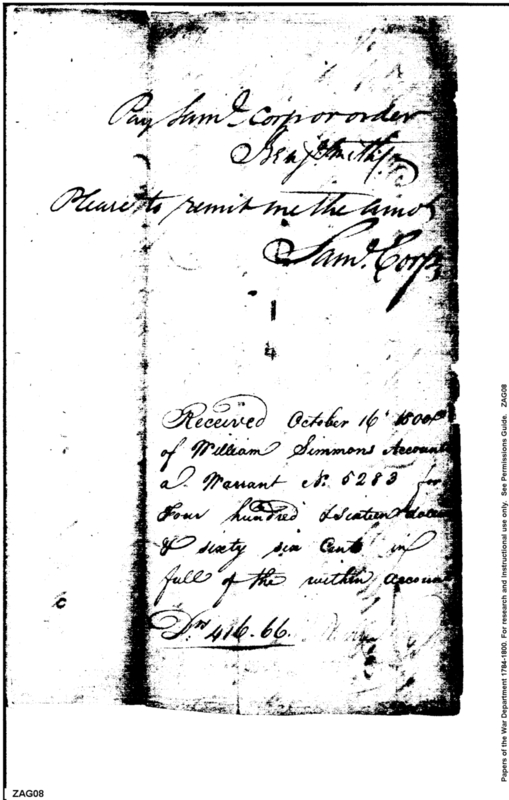 Pay Sam.l Corp or order
Benj Smith jr
Please to remit me the amot
Sam.l Corp
1
4
Received October 16 1800
of William Simmons Account
a Warrant No. 5283 for
Four hundred & sixteen dollars
& sixty six Cents in
full of the within account
416.66.
c
ZAG08
Papers of the War Department 1784-1800. For research and Instructional use only. See Permissions Guide. ZAG08